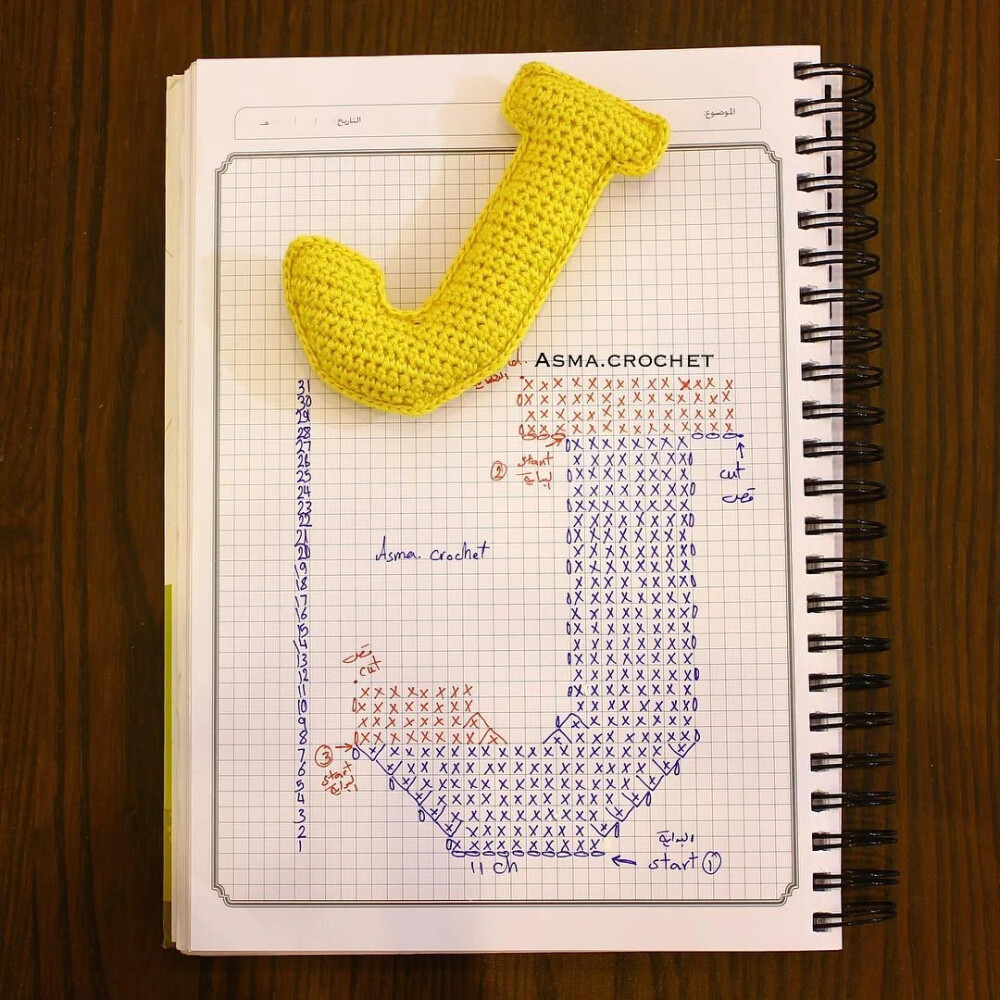 الموضوع:
التاريخ: / / هـ
ASMA.CROCHET
31
30
29
28
27
26
25
24
23
22
21
20
19
18
17
16
15
14
13
12
11
10
9
8
7
6
5
4
3
2
1
② start
البداية
cut
قص
Asma. crochet
قص
cut
③
start
البداية
البداية
start ①
11 ch